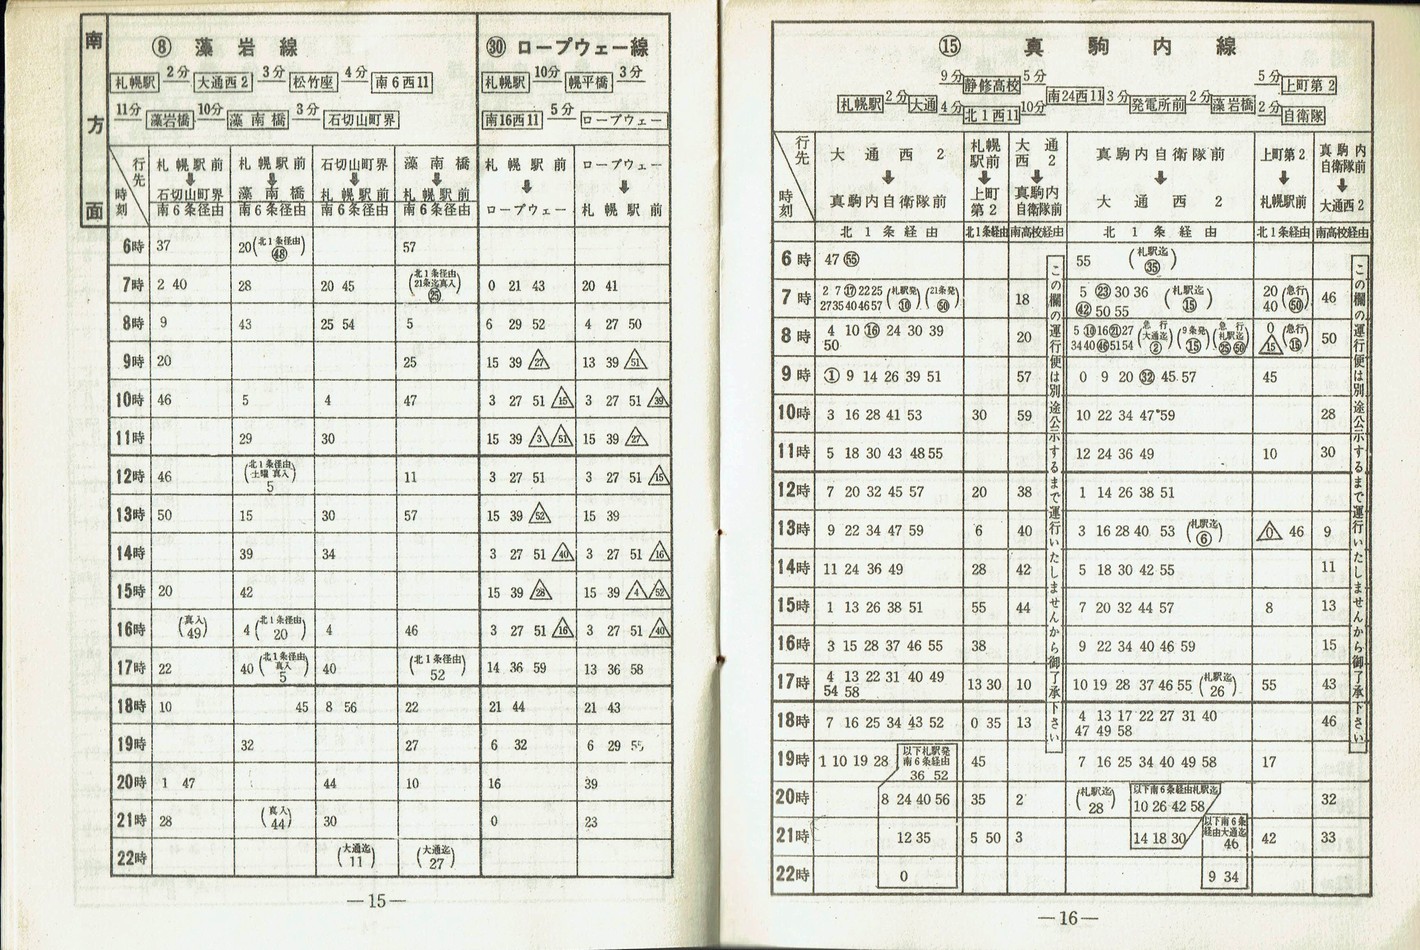 南方面
⑧ 藻岩線
札幌駅 2分 大通西2 3分 松竹座 4分 南6西11
11分 藻岩橋 10分 藻南橋 3分 石切山町界
㉚ ロープウェー線
札幌駅 10分 幌平橋 3分
南16西11 5分 ロープウェー
行先 時刻
札幌駅前➡石切山町界 南6条経由
札幌駅前➡藻南橋 南6条経由
石切山町界➡札幌駅前 南6条経由
藻南橋➡札幌駅前 南6条経由
札幌駅前➡ロープウェー
ロープウェー➡札幌駅前
6時 37 20(北1条経由 ㊽) 57
7時 2 40 28 20 45 (北1条経由 21条迄真入 ㉕) 0 21 43 20 41
8時 9 43 25 54 5 6 29 52 4 27 50
9時 20 25 15 39 27 13 39 51
10時 46 5 4 47 3 27 51 15 3 27 51 39
11時 29 30 15 39 3 51 15 39 27
12時 46 (北1条経由 土曜 真入 5) 11 3 27 51 3 27 51 15
13時 50 15 30 57 15 39 52 15 39
14時 39 34 3 27 51 40 3 27 51 16
15時 20 42 15 39 28 15 39 4 52
16時 (真入 49) 4 (北1条経由 20) 4 46 3 27 51 16 3 27 51 40
17時 22 40 (北1条経由 真入 5) 40 (北1条経由 52) 14 36 59 13 36 58
18時 10 45 8 56 22 21 44 21 43
19時 32 27 6 32 6 29 55
20時 1 47 44 10 16 39
21時 28 (真入 44) 30 0 23
22時 (大通迄 11) (大通迄 27)
—15—
⑮ 真駒内線
札幌駅 2分 大通
9分 静修高校 5分
4分 北1西11 10分
南24西11 3分 発電所前 2分 藻岩橋
5分 上町第2
2分 自衛隊
行先 時刻
大通西2➡真駒内自衛隊前 北1条経由
札幌駅前➡上町第2 北1条経由
大通西2➡真駒内自衛隊前 南高校経由
真駒内自衛隊前➡大通西2 北1条経由
上町第2➡札幌駅前 北1条経由
真駒内自衛隊前➡大通西2 南高校経由
この欄の運行便は別途公示するまで運行いたしませんから御了承下さい
この欄の運行便は別途公示するまで運行いたしませんから御了承下さい
6時 47 55 55 (札駅迄 ㉟)
7時 2 7 17 22 25 27 35 40 46 57 (札駅発 ⑩) (21条発 ㊿) 18 5 ㉓ 30 36 ㊷ 50 55 (札駅迄 ⑮) 20 40 (急行 ㊿) 46
8時 4 10 ⑯ 24 30 39 50 20 5 ⑩ 16 ㉑ 27 34 40 ㊻ 51 54 (急行 大通迄 ②) (9条発 ⑮) (急行 札駅迄 ㉕ ㊿) 0 15 (急行 ⑮) 50
9時 ① 9 14 26 39 51 57 0 9 20 ㉜ 45 57 45
10時 3 16 28 41 53 30 59 10 22 34 47 59 28
11時 5 18 30 43 48 55 12 24 36 49 10 30
12時 7 20 32 45 57 20 38 1 14 26 38 51
13時 9 22 34 47 59 6 40 3 16 28 40 53 (札駅迄 ⑥) 0 46 9
14時 11 24 36 49 28 42 5 18 30 42 55 11
15時 1 13 26 38 51 55 44 7 20 32 44 57 8 13
16時 3 15 28 37 46 55 38 9 22 34 40 46 59 15
17時 4 13 22 31 40 49 54 58 13 30 10 10 19 28 37 46 55 (札駅迄 26) 55 43
18時 7 16 25 34 43 52 0 35 13 4 13 17 22 27 31 40 47 49 58 46
19時 1 10 19 28 以下札駅発南6条経由 36 52 45 7 16 25 34 40 49 58 17
20時 8 24 40 56 35 2 (札駅迄 28) 以下南6条経由札駅迄 10 26 42 58 32
21時 12 35 5 50 3 14 18 30 以下南6条経由大通迄 46 42 33
22時 0 9 34
—16—